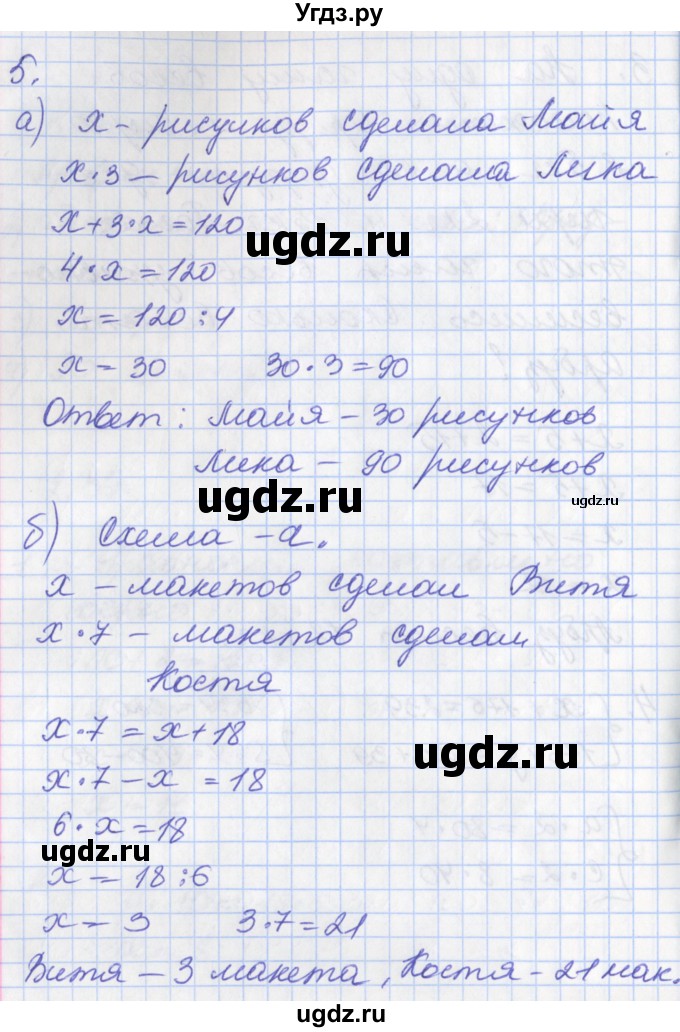 Угдз.ру
5.
а) х - рисунков сделала Майя
х·3 - рисунков сделала Лика
х+3·х=120
ugdz.ru
4·х=120
х=120:4
х=30 30·3=90
Ответ: Майя - 30 рисунков
Лика - 90 рисунков
ugdz.ru
ugdz.ru
б) Схема - а.
х - макетов сделал Витя
х·7 - макетов сделал
Костя
х·7=х+18
ugdz.ru
х·7-х=18
6·х=18
ugdz.ru
х=18:6
х=3 3·7=21
Витя - 3 макета, Костя - 21 мак.
ugdz.ru